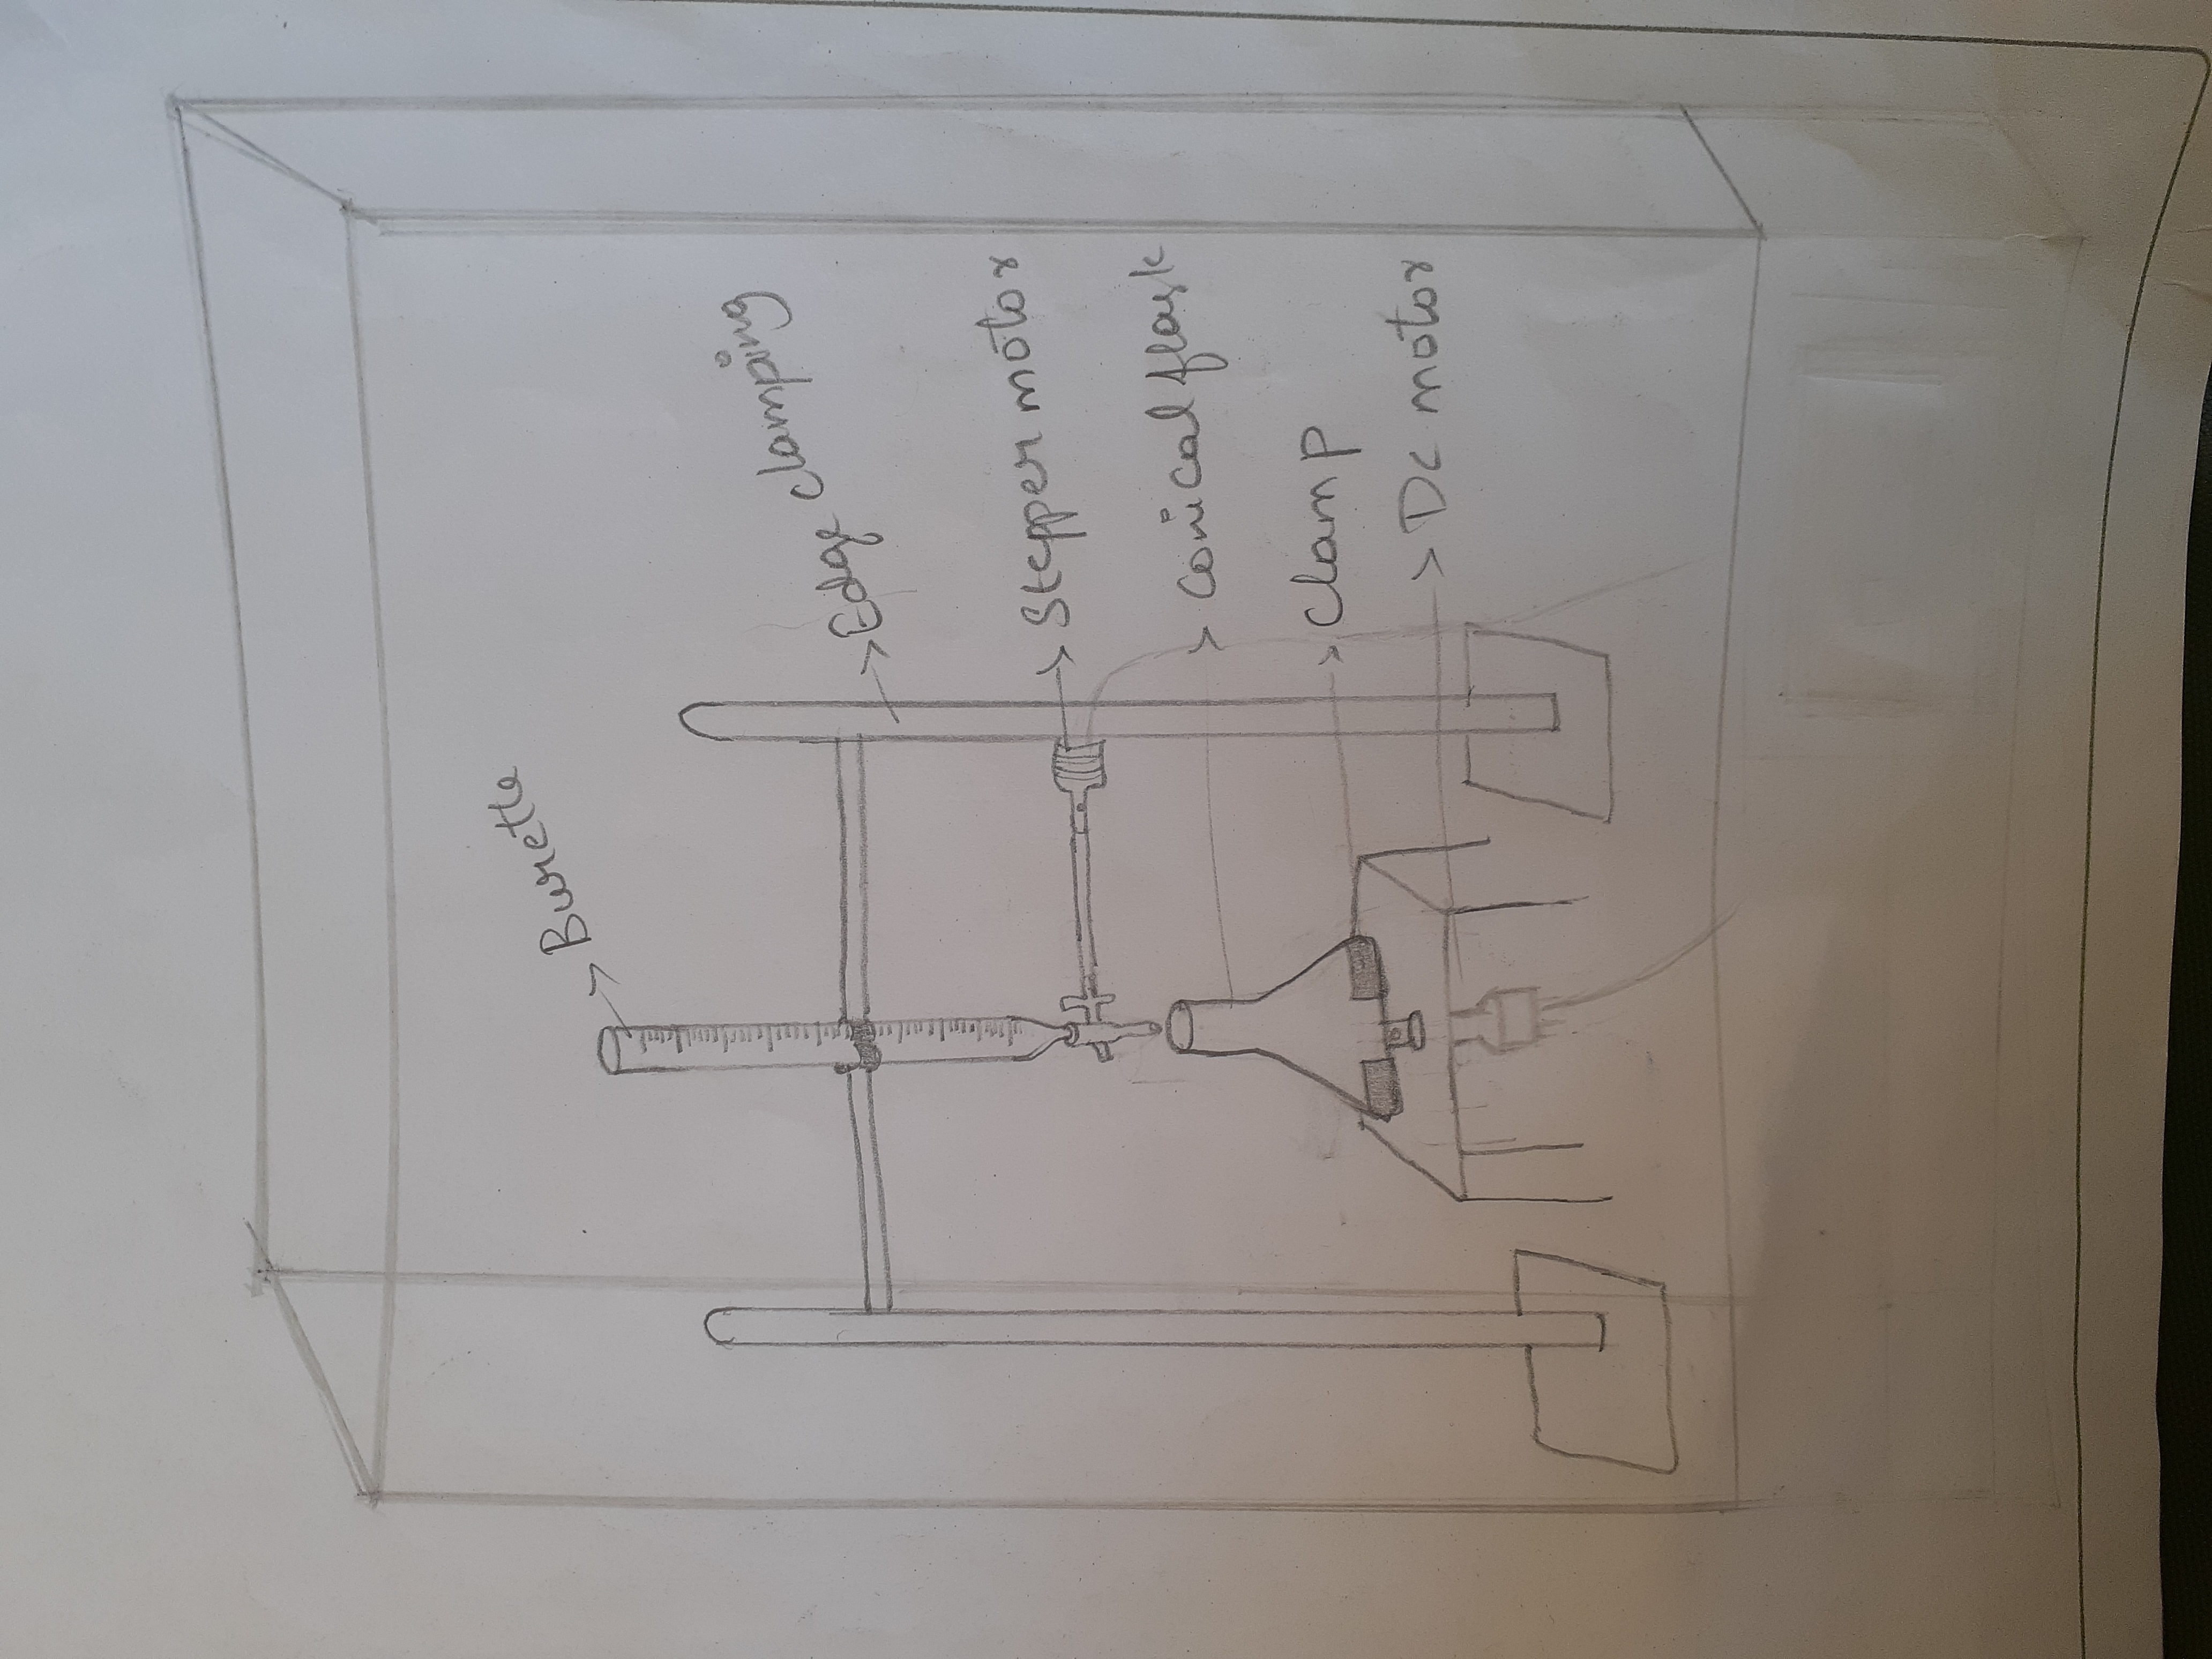 Burette
Edge clamping
Stepper motor
Conical flask
Clamp
Dc motor